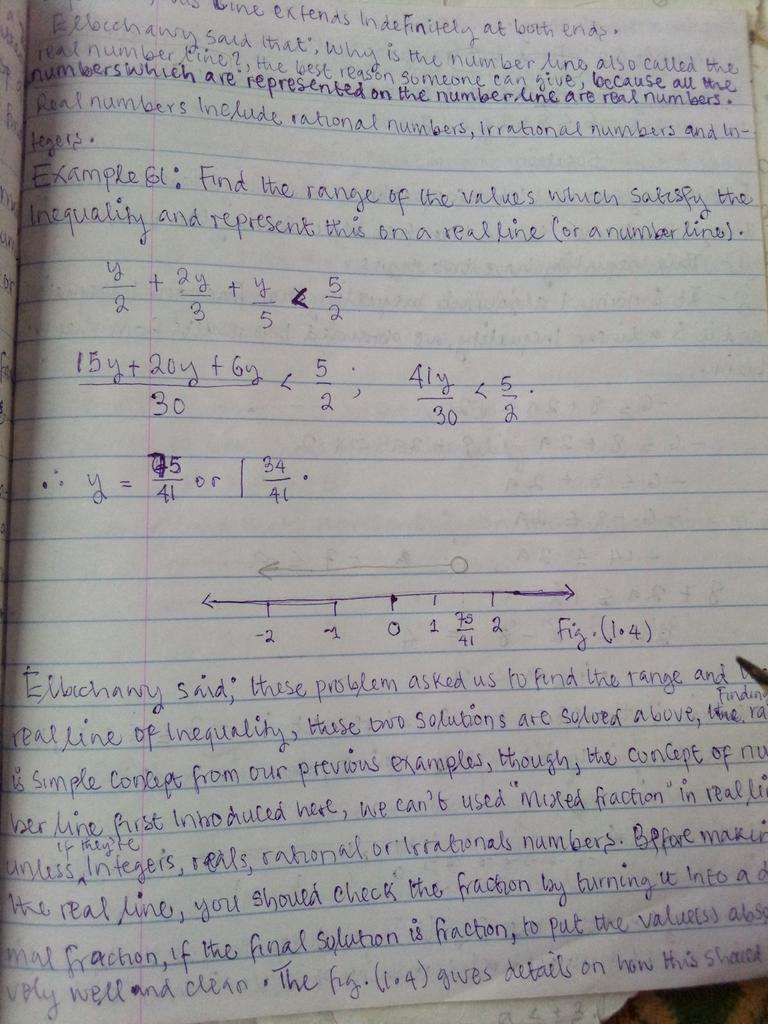 line extends indefinitely at both ends.
Elbichawy said that, why is the number line also called the
real number line?, the best reason someone can give, because all the
numbers which are represented on the number line are real numbers.
Real numbers include rational numbers, irrational numbers and in-
tegers.
Example 61: Find the range of the values which satisfy the
inequality and represent this on a real line (or a number line).
y/2 + 2y/3 + y/5 < 5/2
15y + 20y + 6y / 30 < 5/2 ; 41y/30 < 5/2.
∴ y = 75/41 or 1 34/41.
-2 -1 0 1 75/41 2 Fig. (1.4)
Elbichawy said; these problem asked us to find the range and
real line of inequality, these two solutions are solved above, Finding the
is simple concept from our previous examples, though, the concept of nu
ber line first introduced here, we can't used "mixed fraction" in real
unless if they're integers, reals, rational or irrationals numbers. Before
the real line, you should check the fraction by turning it into a
mal fraction, if the final solution is fraction, to put the value(s)
vely well and clean. The fig. (1.4) gives details on how this should